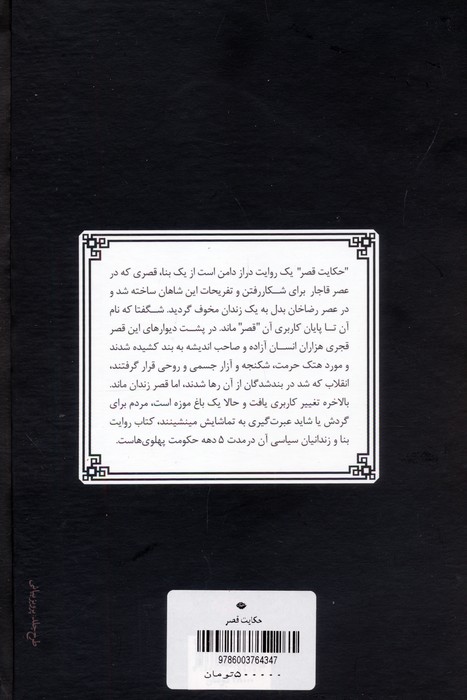 "حکایت قصر" یک روایت دراز دامن است از یک بنا، قصری که در
عصر قاجار برای شکاررفتن و تفریحات این شاهان ساخته شد و
در عصر رضاخان بدل به یک زندان مخوف گردید. شگفتا که نام
آن تا پایان کاربری آن "قصر" ماند. در پشت دیوارهای این قصر
قجری هزاران انسان آزاده و صاحب اندیشه به بند کشیده شدند
و مورد هتک حرمت، شکنجه و آزار جسمی و روحی قرار گرفتند،
انقلاب که شد در بندشدگان از آن رها شدند، اما قصر زندان ماند.
بالاخره تغییر کاربری یافت و حالا یک باغ موزه است، مردم برای
گردش یا شاید عبرت‌گیری به تماشایش مینشینند، کتاب روایت
بنا و زندانیان سیاسی آن درمدت ۵ دهه حکومت پهلوی‌هاست.
طرح جلد: پرویز بیانی
حکایت قصر
9786003764347
۵۰۰۰۰۰تومان